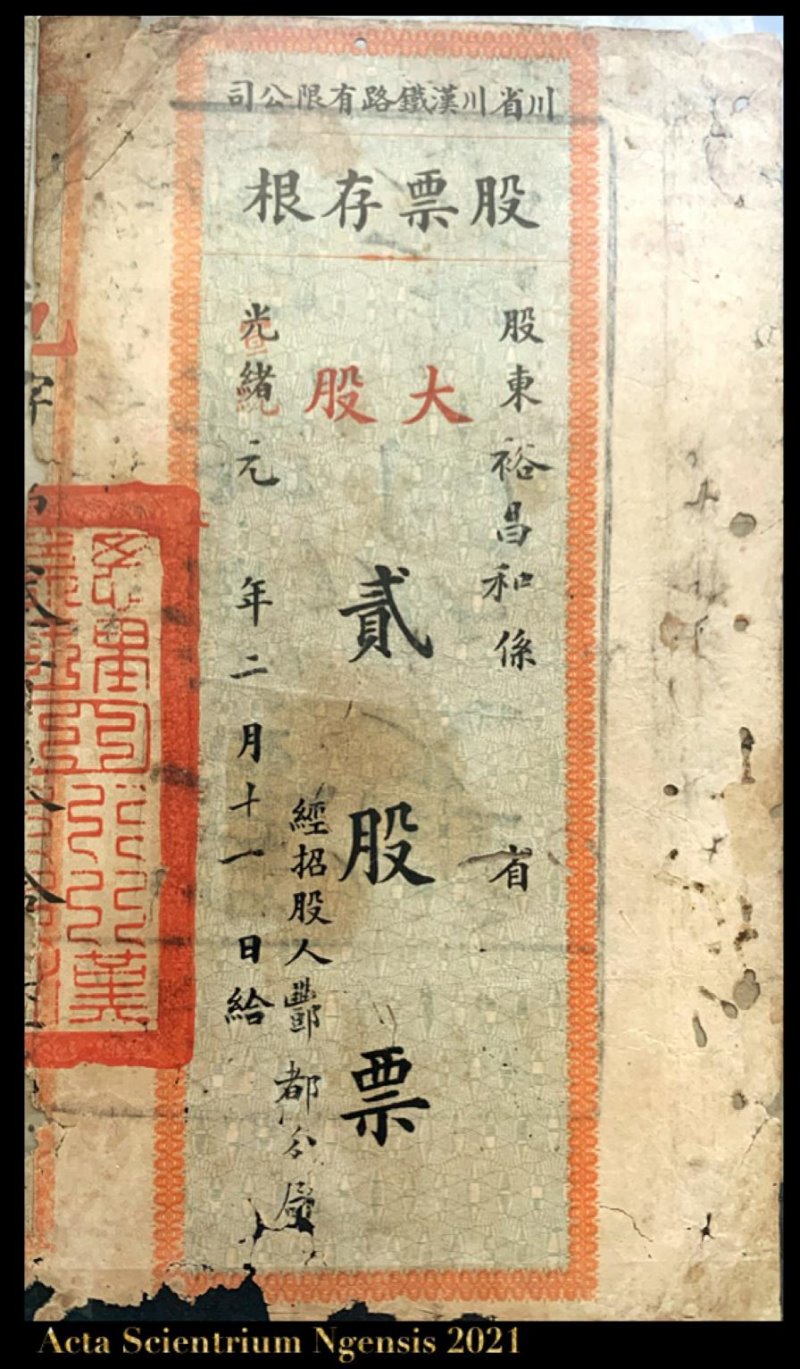 川省川漢鐵路有限公司
股票存根
股東裕昌和係 省
大股
貳股票
經招股人酆都分局
光緒元年二月十一日給
宣統
Acta Scientrium Ngensis 2021